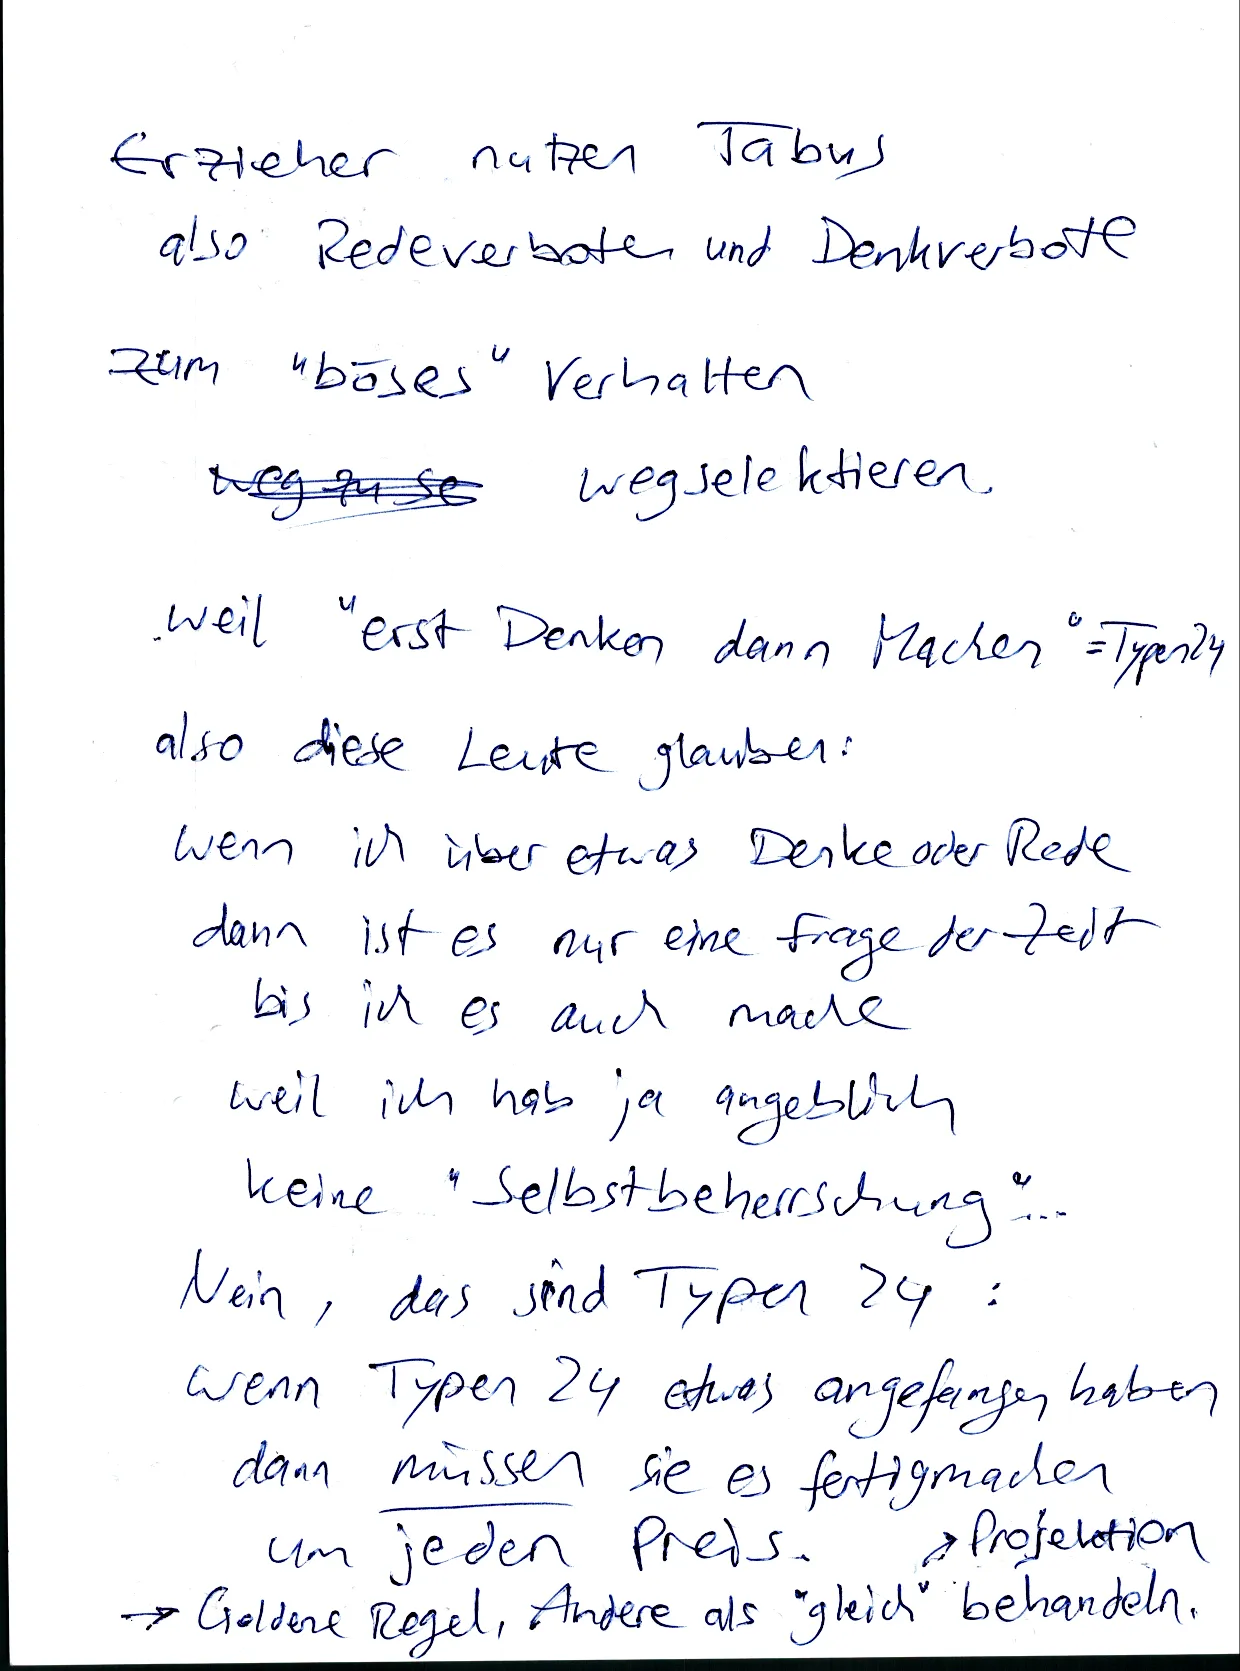 Erzieher nutzen Tabus
also Redeverbote und Denkverbote
zum "böses" Verhalten
weg zu se wegselektieren.
weil "erst Denken dann Machen" = Typen 24
also diese Leute glauben:
wenn ich über etwas Denke oder Rede
dann ist es nur eine Frage der Zeit
bis ich es auch mache
weil ich hab ja angeblich
keine "Selbstbeherrschung"...
Nein, das sind Typen 24:
wenn Typen 24 etwas angefangen haben
dann müssen sie es fertigmachen
um jeden Preis. → Projektion
→ Goldene Regel, Andere als "gleich" behandeln.